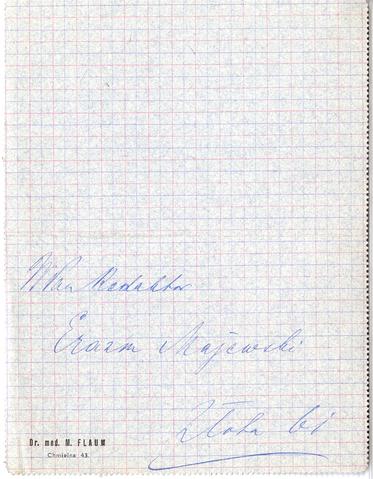 WPan Redaktor
Erazm Majewski
Złota 61
Dr. med. M. FLAUM
Chmielna 43.